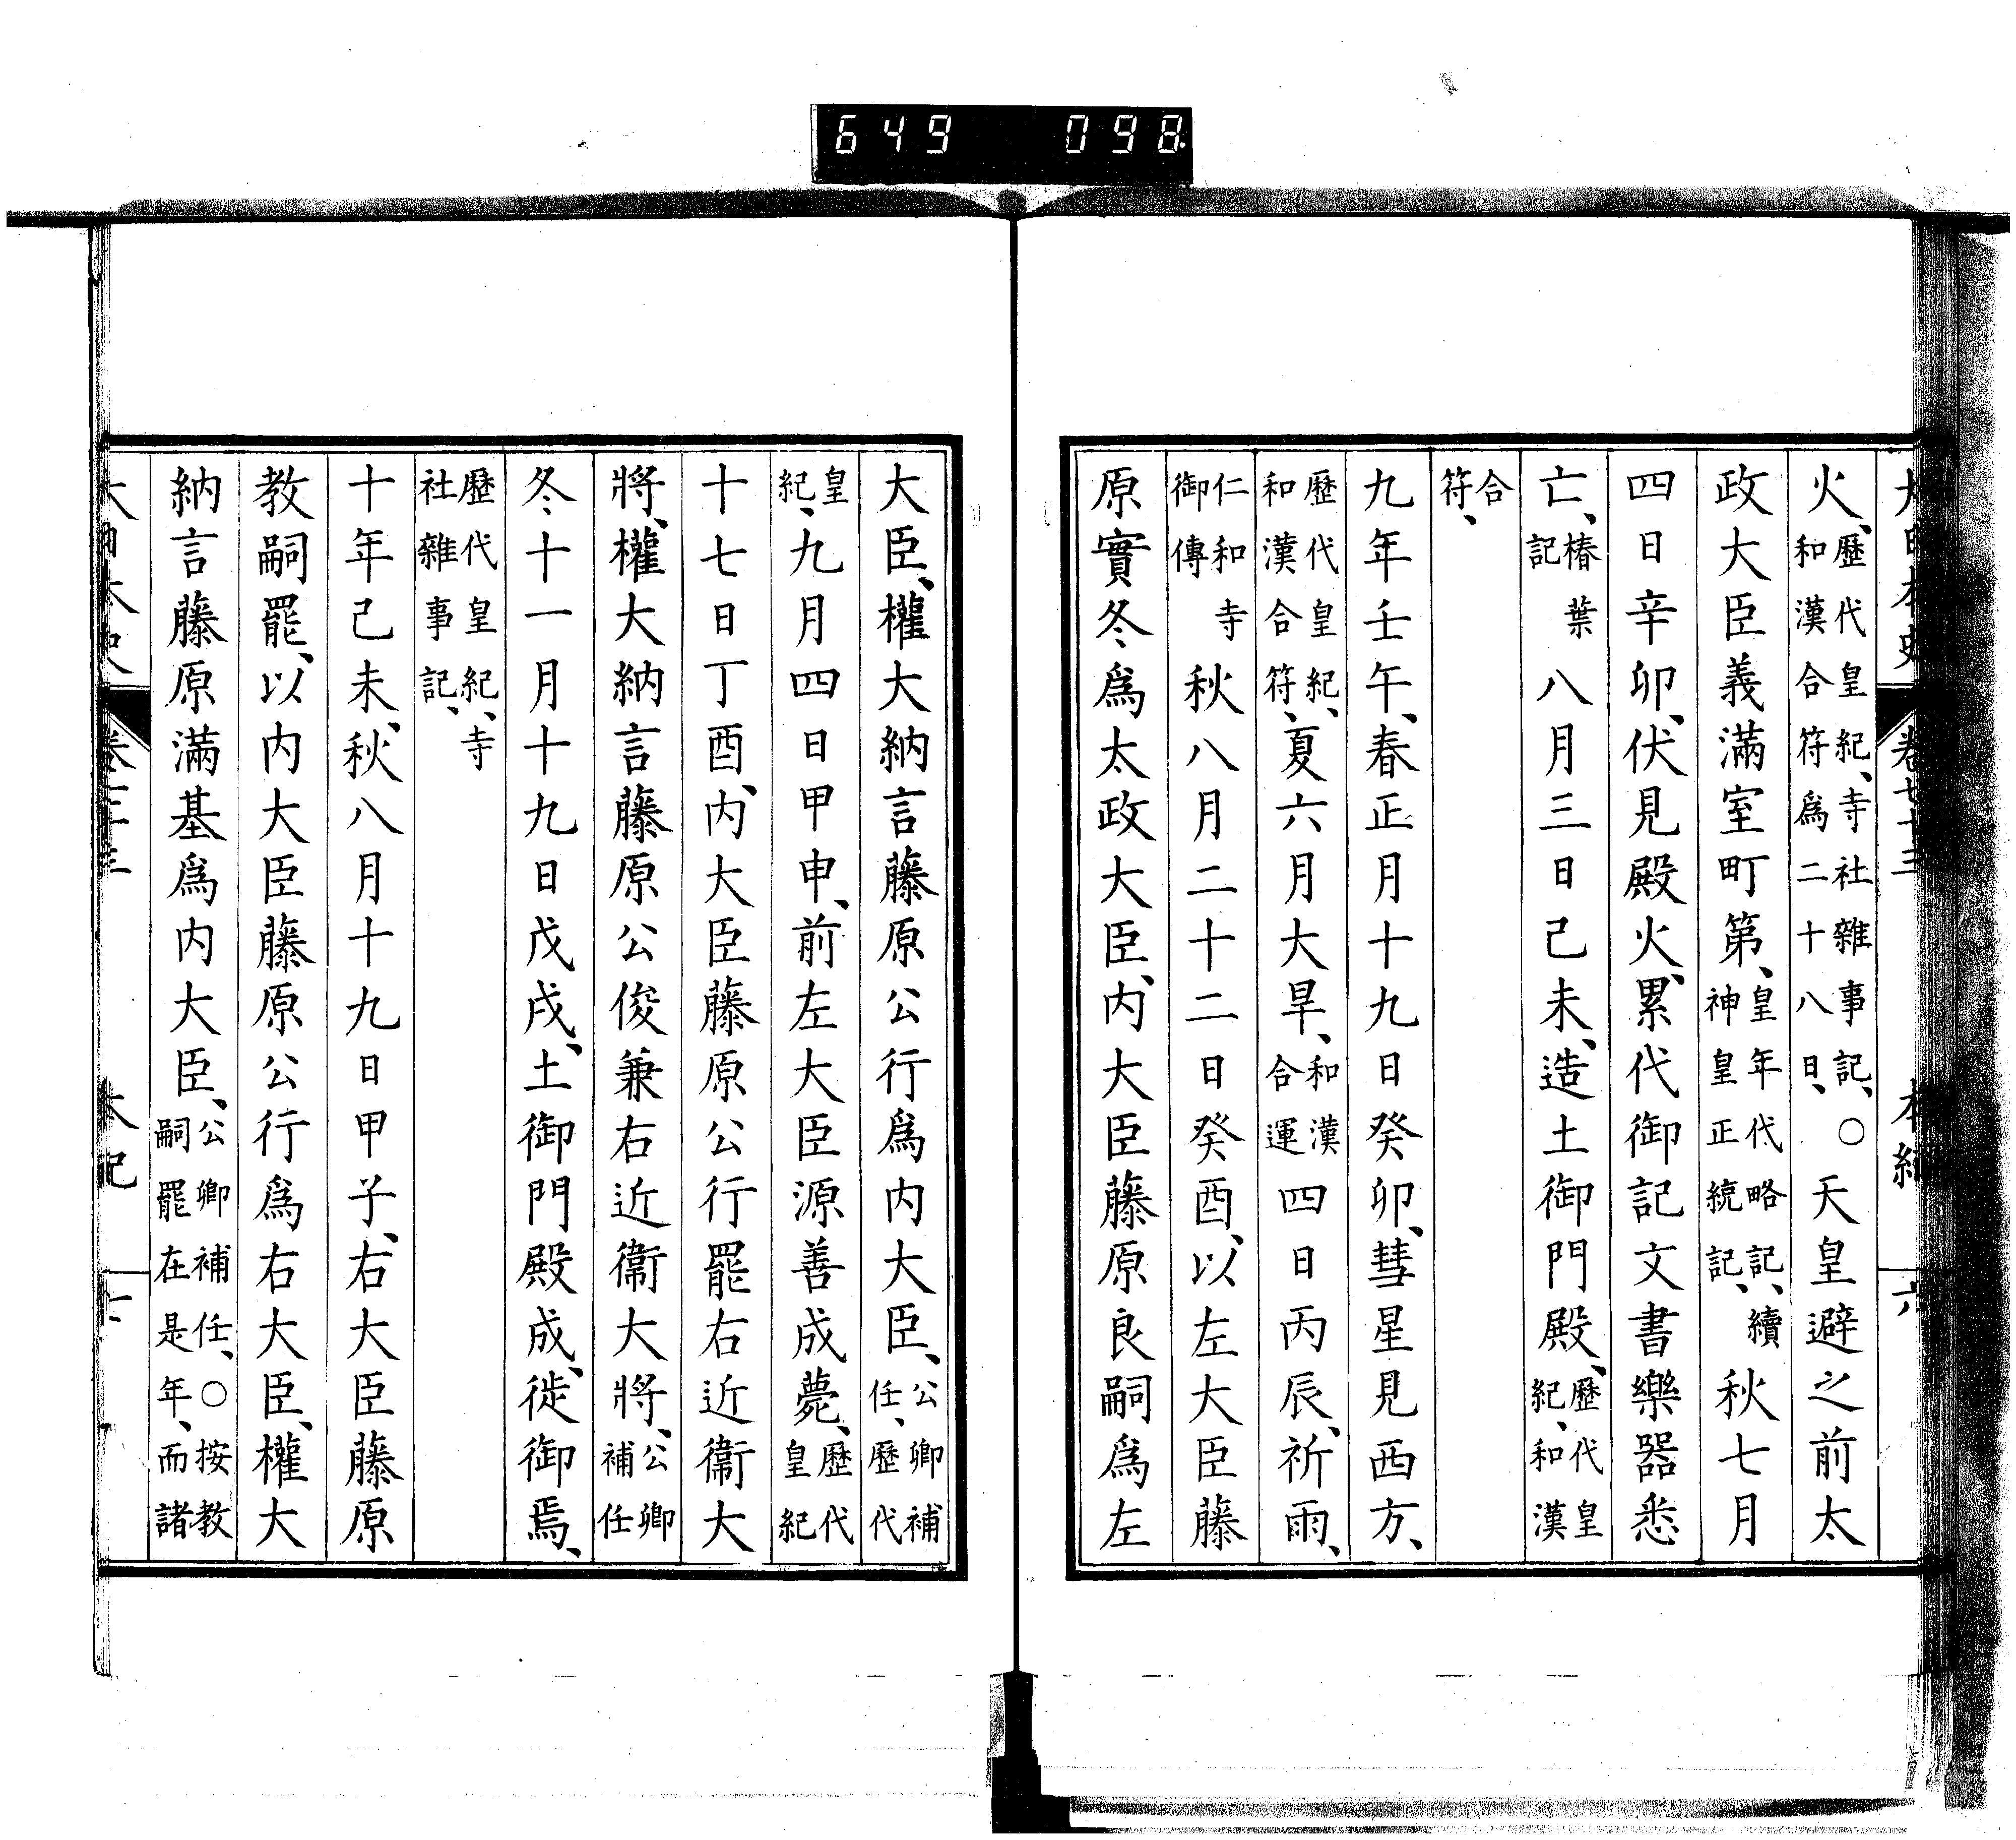 649 098
大日本史 卷七十三 本紀 六
火、歷代皇紀、寺社雜事記、○和漢合符爲二十八日、天皇避之前太
政大臣義滿室町第、皇年代略記、續神皇正統記、秋七月
四日辛卯、伏見殿火、累代御記文書樂器悉
亡、椿葉記八月三日己未、造土御門殿、歷代皇紀、和漢
合符、
九年壬午、春正月十九日癸卯、彗星見西方、
歷代皇紀、和漢合符、夏六月大旱、和漢合運四日丙辰、祈雨、
仁和寺御傳秋八月二十二日癸酉、以左大臣藤
原實冬爲太政大臣、内大臣藤原良嗣爲左
大臣、權大納言藤原公行爲内大臣、公卿補任、歷代
皇紀、九月四日甲申、前左大臣源善成薨、歷代皇紀
十七日丁酉、内大臣藤原公行罷右近衞大
將、權大納言藤原公俊兼右近衞大將、公卿補任
冬十一月十九日戊戌、土御門殿成、徙御焉、
歷代皇紀、寺社雜事記、
十年己未、秋八月十九日甲子、右大臣藤原
教嗣罷、以内大臣藤原公行爲右大臣、權大
納言藤原滿基爲内大臣、公卿補任、○按教嗣罷在是年、而諸
大日本史 卷 本紀